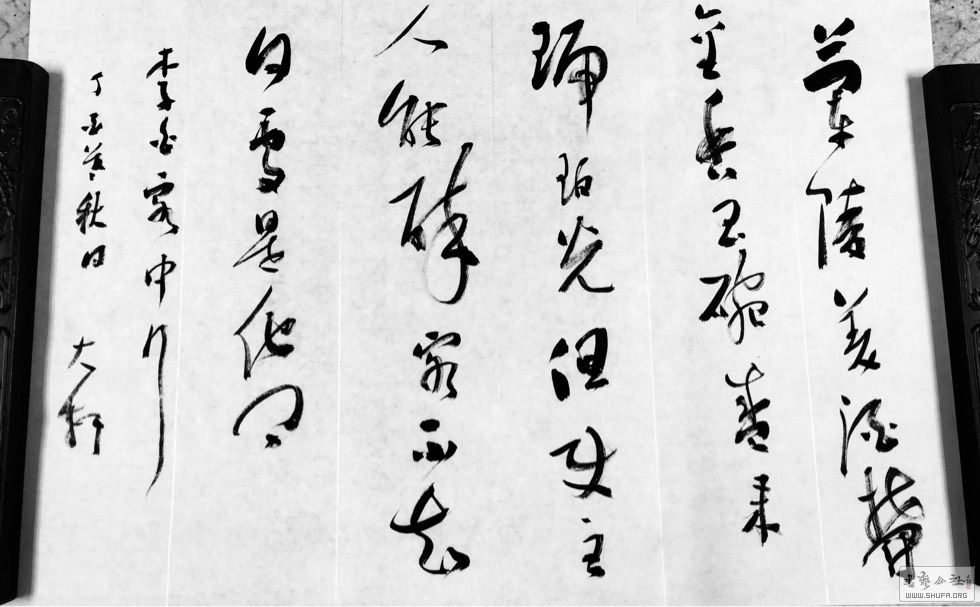 蘭陵美酒鬱
金香玉碗盛来
琥珀光但使主
人能醉客不知
何處是他鄉
李白客中行
丁酉暮秋日 大軒
書藝公社
WWW.SHUFA.ORG